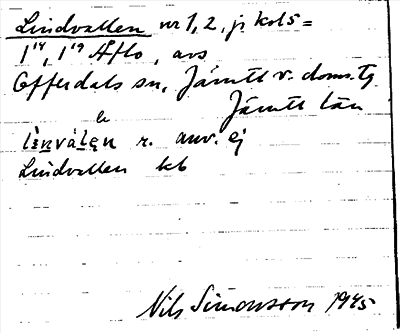 Lindvallen nr 1, 2, jr kols =
1¹⁴, 1¹⁹ Aflo, avs
Offerdals sn, Jämtl v. doms. Tg
Jämtl län
l̀ènválęn r. anv. ej
Lindvallen kb
Nils Simonsson 1945